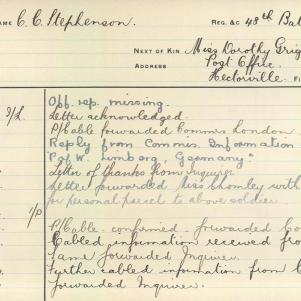 NAME C. C. Stephenson. REG. &c 48th Bat
NEXT OF KIN Miss Dorothy Grig
ADDRESS Post Office
Hectorville.
2/L. Off. rep. missing.
Letter acknowledged.
P/Cable forwarded Commrs London
Reply from Commrs. Information
"P of W. Limburg, Germany"
Letter of thanks from inquirer
Letter forwarded Miss Chomley with
for personal parcel to above soldier.
1/P P/Cable confirmed - forwarded Co
Cabled information received fro
Same forwarded Inquirer.
Further cabled information from
forwarded Inquirer.